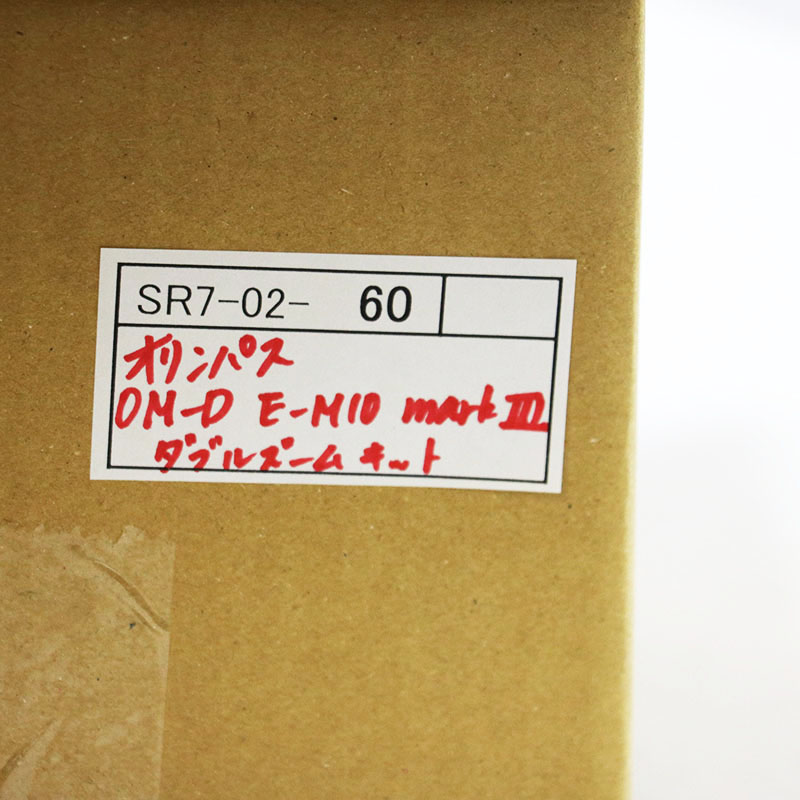 SR7-02- 60
オリンパス
OM-D E-M10 mark III
ダブルズームキット